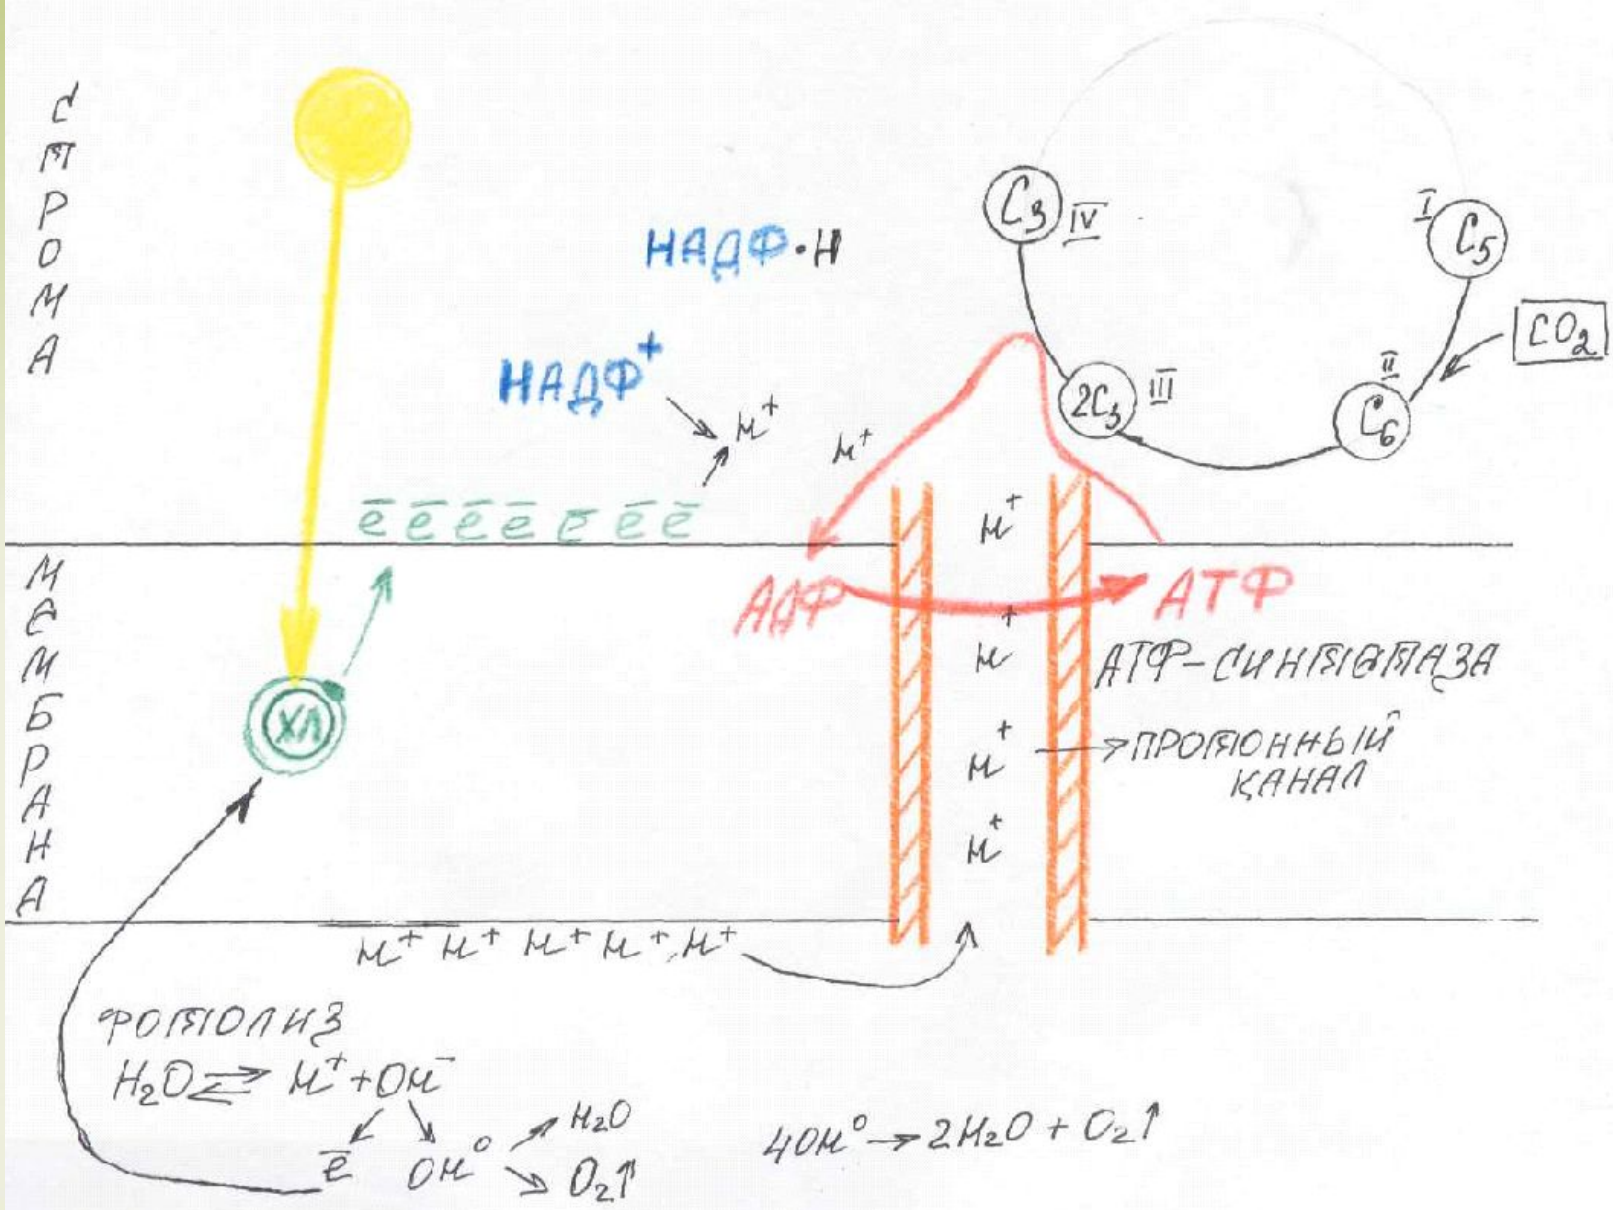 СТРОМА
НАДФ·H
НАДФ⁺
H⁺
H⁺
ē ē ē ē ē ē ē
C₃ IV
I C₅
CO₂
2C₃ III
II C₆
МЕМБРАНА
ХЛ
АДФ
АТФ
H⁺
H⁺
H⁺
H⁺
АТФ-СИНТЕТАЗА
ПРОТОННЫЙ
КАНАЛ
H⁺ H⁺ H⁺ H⁺ H⁺
ФОТОЛИЗ
H₂O ⇄ H⁺ + OH⁻
ē OH⁰ H₂O
O₂↑
4OH⁰ → 2H₂O + O₂↑